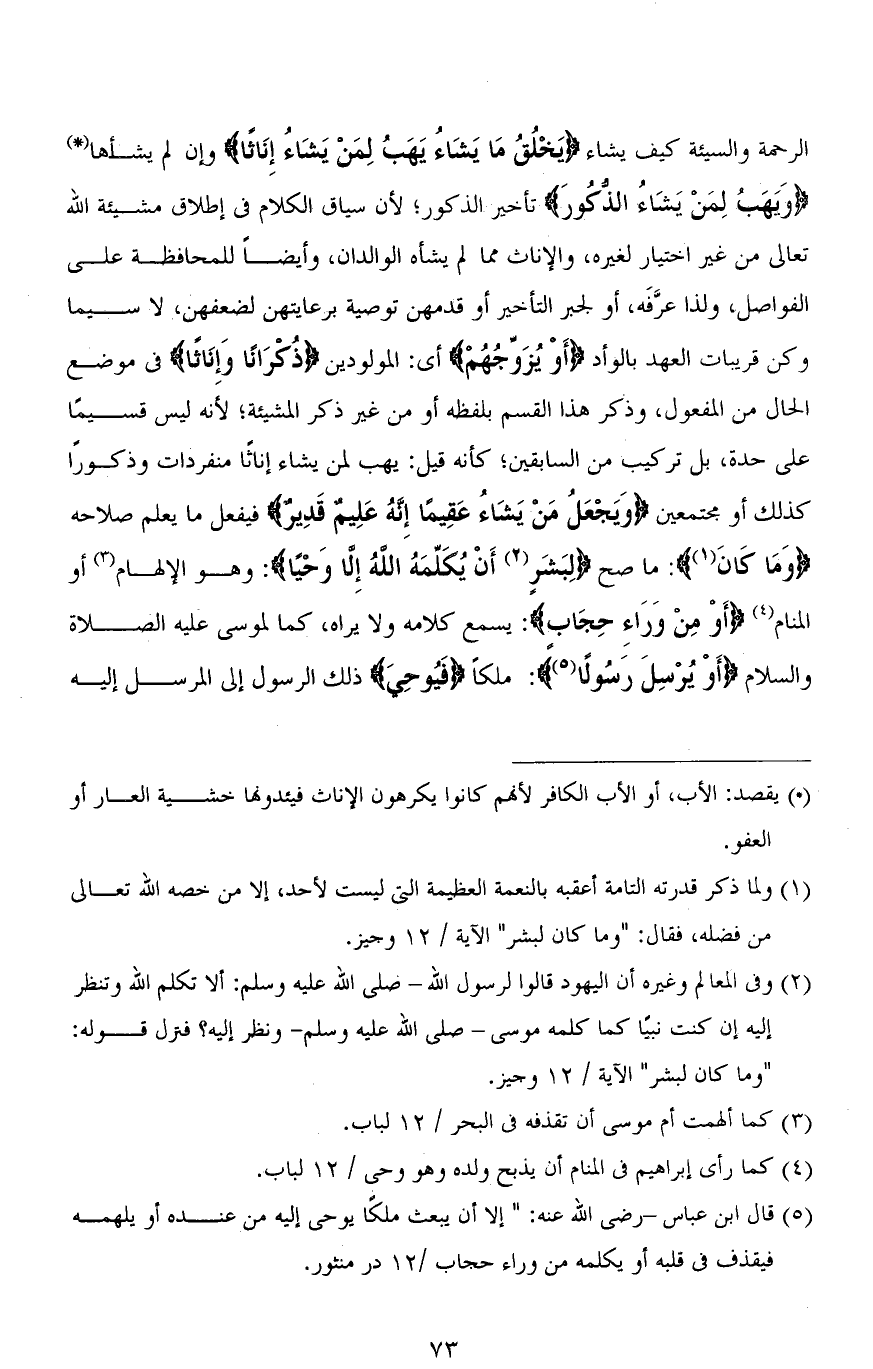 الرحمة والسيئة كيف يشاء ﴿يَخْلُقُ مَا يَشَاءُ يَهَبُ لِمَنْ يَشَاءُ إِنَاثًا﴾ وإن لم يشأها(*)
﴿وَيَهَبُ لِمَنْ يَشَاءُ الذُّكُورَ﴾ تأخير الذكور؛ لأن سياق الكلام فى إطلاق مشيئة الله
تعالى من غير اختيار لغيره، والإناث مما لم يشأه الوالدان، وأيضاً للمحافظة على
الفواصل، ولذا عرَّفَه، أو لجبر التأخير أو قدمهن توصية برعايتهن لضعفهن، لا سيما
وكن قريبات العهد بالوأد ﴿أَوْ يُزَوِّجُهُمْ﴾ أى: المولودين ﴿ذُكْرَانًا وَإِنَاثًا﴾ فى موضع
الحال من المفعول، وذكر هذا القسم بلفظه أو من غير ذكر المشيئة؛ لأنه ليس قسيمًا
على حدة، بل تركيب من السابقين؛ كأنه قيل: يهب لمن يشاء إناثًا منفردات وذكورًا
كذلك أو مجتمعين ﴿وَيَجْعَلُ مَنْ يَشَاءُ عَقِيمًا إِنَّهُ عَلِيمٌ قَدِيرٌ﴾ فيفعل ما يعلم صلاحه
﴿وَمَا كَانَ(١)﴾: ما صح ﴿لِبَشَرٍ(٢) أَنْ يُكَلِّمَهُ اللَّهُ إِلَّا وَحْيًا﴾: وهو الإلهام(٣) أو
المنام(٤) ﴿أَوْ مِنْ وَرَاءِ حِجَابٍ﴾: يسمع كلامه ولا يراه، كما لموسى عليه الصلاة
والسلام ﴿أَوْ يُرْسِلَ رَسُولًا(٥)﴾: ملكاً ﴿فَيُوحِيَ﴾ ذلك الرسول إلى المرسل إليه
(*) يقصد: الأب، أو الأب الكافر لأنهم كانوا يكرهون الإناث فيئدونها خشية العار أو
العفو.
(١) ولما ذكر قدرته التامة أعقبه بالنعمة العظيمة التى ليست لأحد، إلا من خصه الله تعالى
من فضله، فقال: "وما كان لبشر" الآية / ١٢ وجيز.
(٢) وفى المعالم وغيره أن اليهود قالوا لرسول الله – صلى الله عليه وسلم: ألا تكلم الله وتنظر
إليه إن كنت نبيًا كما كلمه موسى – صلى الله عليه وسلم– ونظر إليه؟ فنزل قوله:
"وما كان لبشر" الآية / ١٢ وجيز.
(٣) كما ألهمت أم موسى أن تقذفه فى البحر / ١٢ لباب.
(٤) كما رأى إبراهيم فى المنام أن يذبح ولده وهو وحى / ١٢ لباب.
(٥) قال ابن عباس –رضى الله عنه: " إلا أن يبعث ملكًا يوحى إليه من عنده أو يلهمه
فيقذف فى قلبه أو يكلمه من وراء حجاب /١٢ در منثور.
٧٣